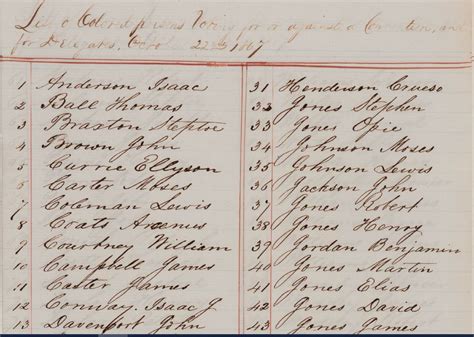 List of Colored persons Voting for or against a Convention, and
for Delegates, October 22nd 1867
1 Anderson Isaac
2 Ball Thomas
3 Braxton Steptoe
4 Brown John
5 Currie Ellyson
6 Carter Moses
7 Coleman Lewis
8 Coats Arcenus
9 Courtney William
10 Campbell James
11 Caster James
12 Conway, Isaac G
13 Davenport John
31 Henderson Crueso
32 Jones Stephen
33 Jones Opie
34 Johnson Moses
35 Johnson Lewis
36 Jackson John
37 Jones Robert
38 Jones Henry
39 Jordan Benjamin
40 Jones Martin
41 Jones Elias
42 Jones David
43 Jones James